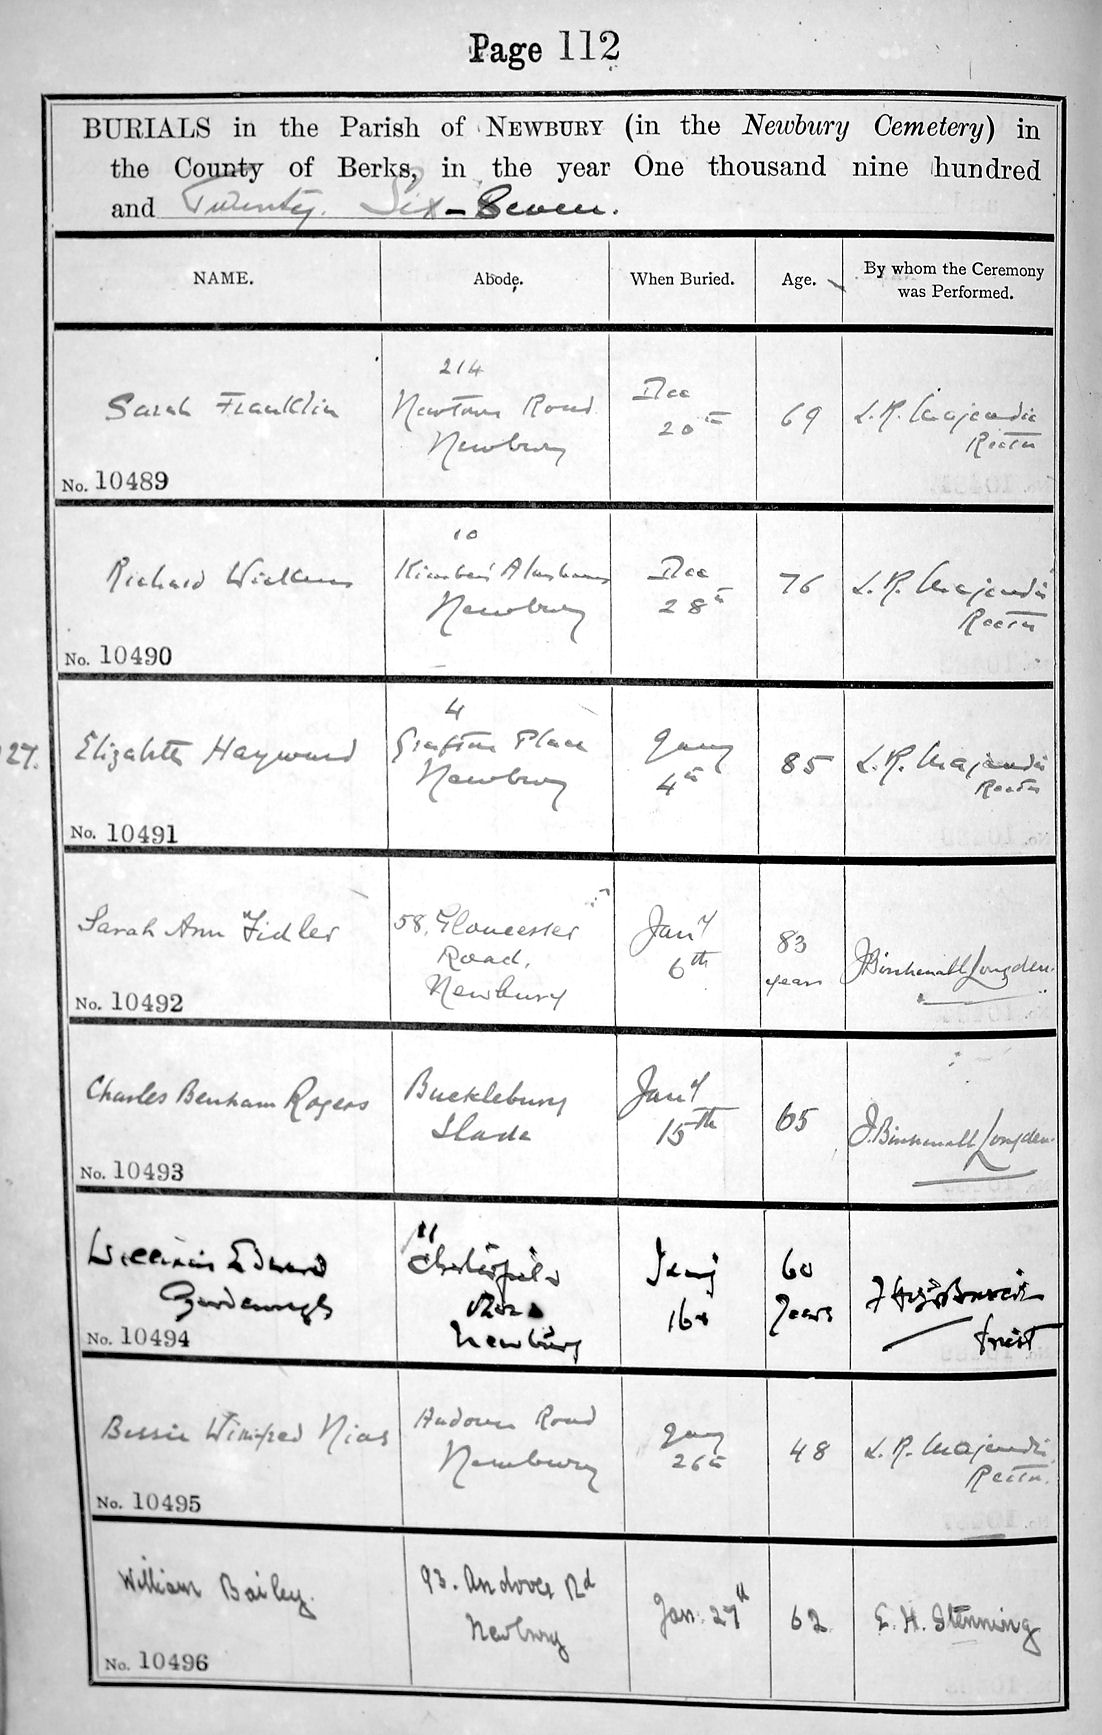 Page 112
BURIALS in the Parish of NEWBURY (in the Newbury Cemetery) in
the County of Berks, in the year One thousand nine hundred
and Twenty. Six - Seven.
NAME. Abode. When Buried. Age. By whom the Ceremony
was Performed.
214
Sarah Franklin Newtown Road Dec 20th 69 L. R. Majendie
Newbury Rector
No. 10489
10
Richard Dec 76 L. R. Majendie
Newbury 28th Rector
No. 10490
4
27. Elizabeth Hayward Place Jany 85 L. R. Majendie
Newbury 4th Rector
No. 10491
Sarah Ann Fidler 58, Gloucester Jany 83 J. Longden.
Road, 6th years
Newbury
No. 10492
Charles Benham Rogers Bucklebury Jany 65 J. Longden.
Slade 15th
No. 10493
11
William Edward Chesterfield Jany 60
16th Years Priest
Newbury
No. 10494
Bessie Winifred Nias Andover Road Jany 48 L. R. Majendie
Newbury 26th Rector.
No. 10495
William Bailey. 93. Andover Rd Jan. 27th 62 E. H. Stenning
Newbury
No. 10496